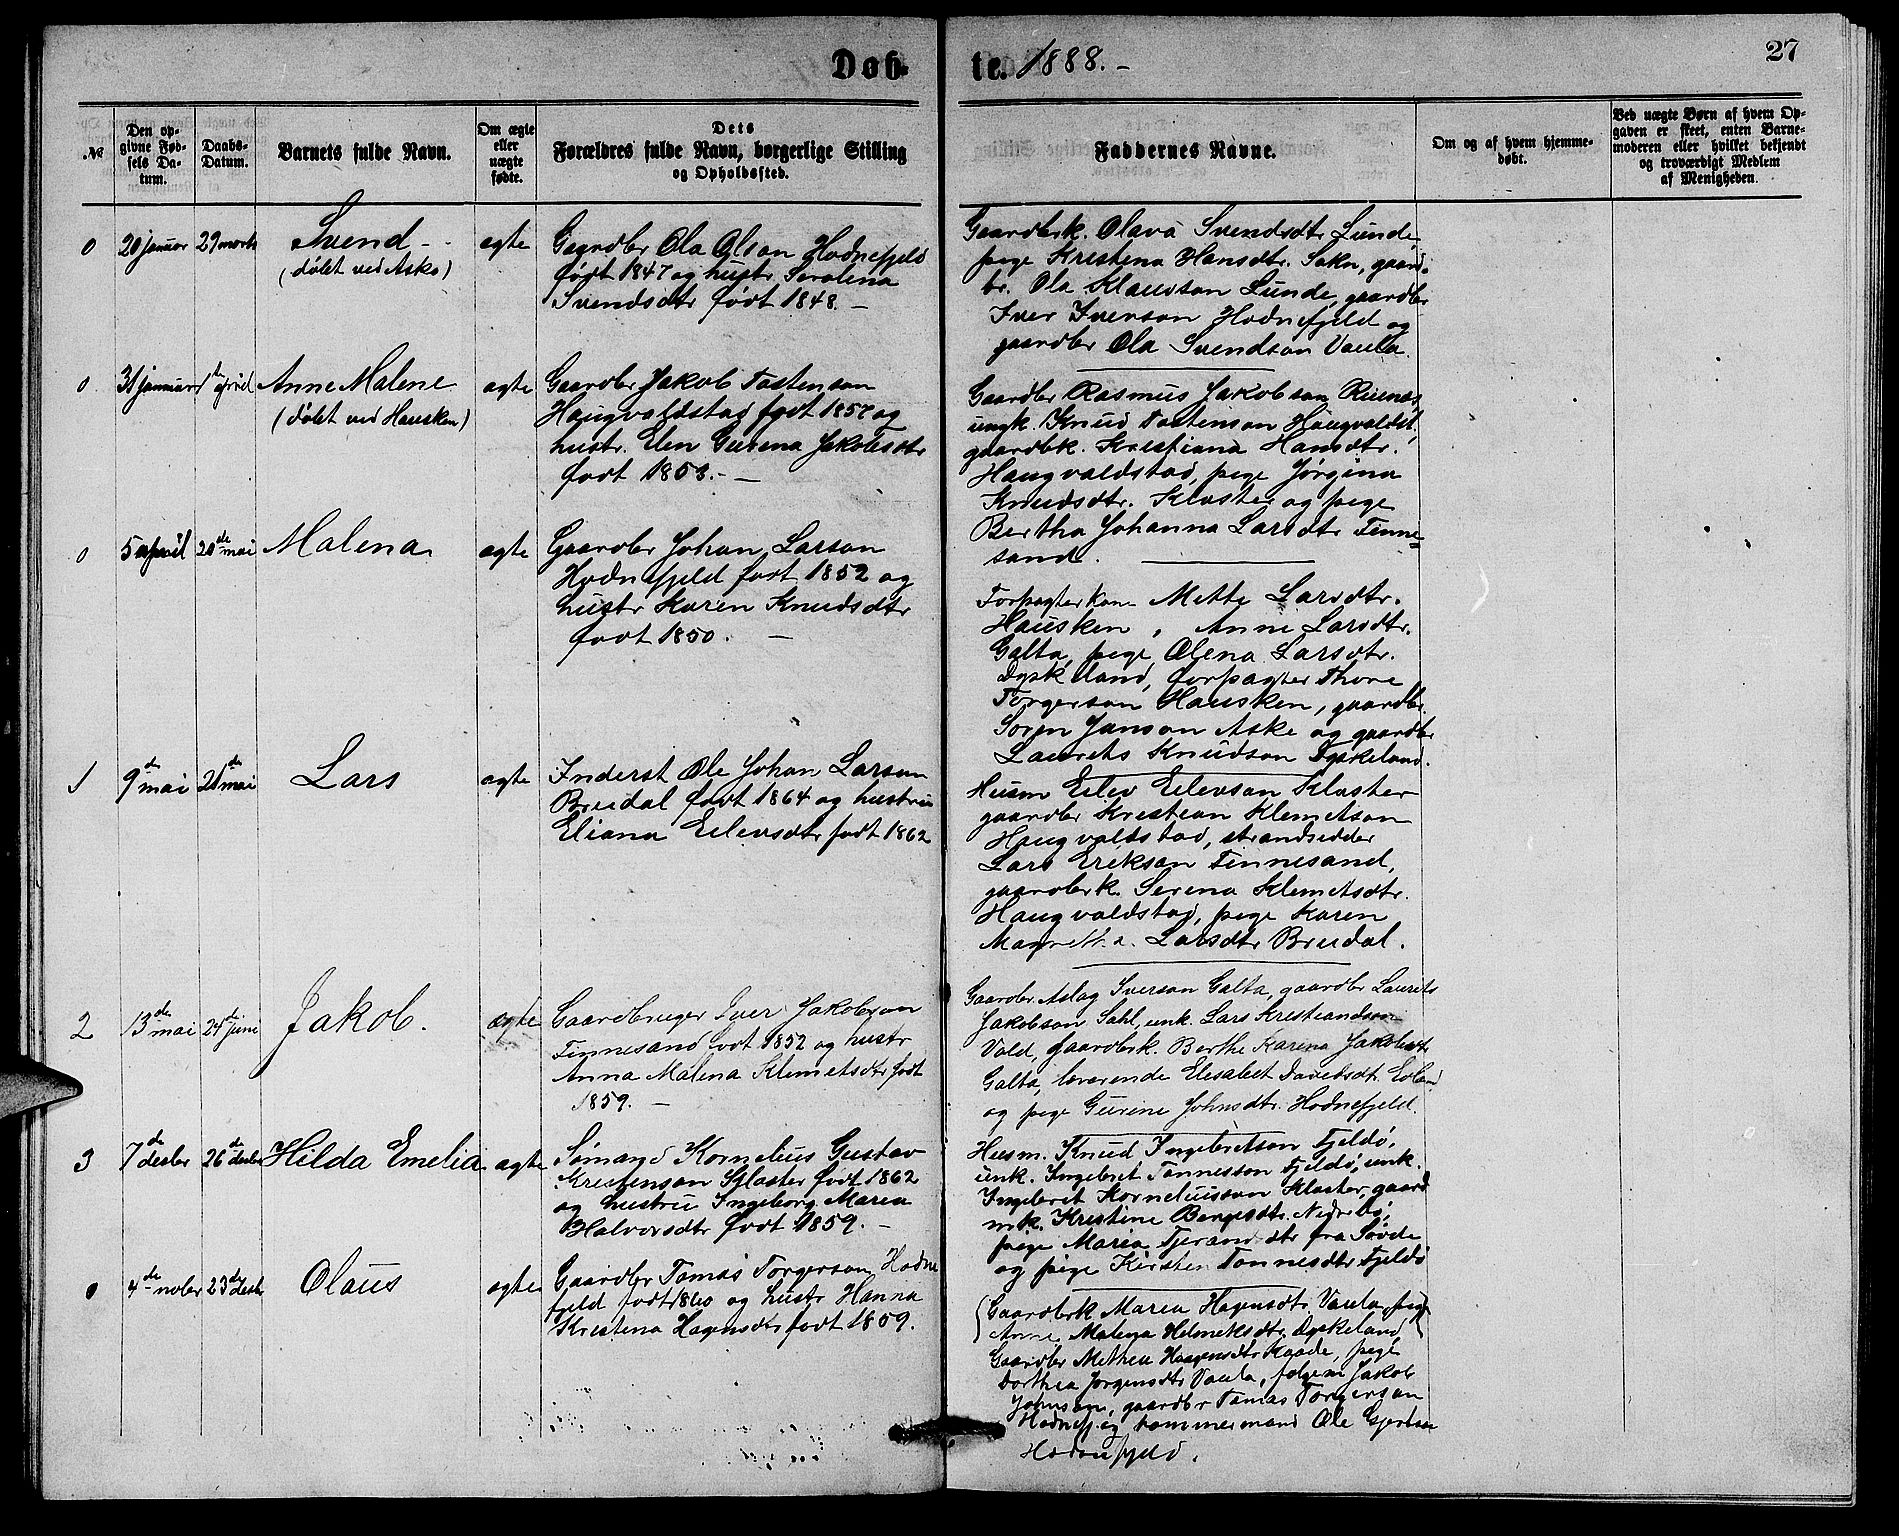 Døb-
te. 1888.-
27
№
Den op-
givne Fød-
sels Da-
tum.
Daabs-
Datum.
Barnets fulde Navn.
Om ægte
eller
uægte
fødte.
Dets
Forældres fulde Navn, borgerlige Stilling
og Opholdssted.
Faddernes Navne.
Om og af hvem hjemme-
døbt.
Ved uægte Børn af hvem Op-
gaven er skeet, enten Barne-
moderen eller hvilket bekjendt
og troværdigt Medlem
af Menigheden.
0 20 januar 29 marts Svend - -
(døbt ved Aske)
ægte
Gaardbr Ola Olson Hodnefjeld
født 1847 og hustr Seralena
Svendsdtr født 1848. -
Gaardbrk. Olava Svendsdtr Lunde
pige Kristena Hansdtr. Sokn, gaard-
br. Ola Klauson Lunde, gaardbr
Iver Iverson Hodnefjeld og
gaardbr Ola Svendson Vaula.
0 31 januar 1 april Anne Malene
(døbt ved Hausken)
ægte
Gaardbr Jakob Tostenson
Haugvaldstad født 1857 og
hustr. Elen Gurena Jakobsdtr
født 1853. -
Gaardbr Rasmus Jakobson
ungk. Knud Tostenson Haugvaldst,
gaardbk. Kristiana Hansdtr.
Haugvaldstad, pige Jørgina
Knudsdtr. Kloster og pige
Bertha Johanna Larsdtr Finne=
sand.
0 5 april 20de mai Malena
ægte
Gaardbr Johan Larson
Hodnefjeld født 1852 og
hustr Karen Knudsdtr
født 1850. -
Forpagterkone Mette Larsdtr.
Hausken, Anne Larsdtr.
Galta, pige Olena Larsdtr.
Dyskeland, forpagter Thore
Torgerson Hausken, gaardbr.
Soren Janson Aske og gaardbr
Laurets Knudson Dyskeland.
1 9de mai 21de mai Lars
ægte
Inderst Ole Johan Larson
Bredal født 1864 og hustru
Eliana Eilevsdtr født 1862
Husm Eilev Eilevson Kloster
gaardbr Kristian Klemetson
Haugvaldstad, strandsidder
Lars Erikson Finnesand,
gaardbrk. Serena Klemetsdtr.
Haugvaldstad, pige Karen
Larsdtr Bredal.
2 13de mai 24de juni Jakob.
ægte
Gaardbruger Iver Jakobson
Finnesand født 1852 og hustr
Anna Malena Klemetsdtr født
1859. -
Gaardbr. Aslag Iverson Galta, gaardbr Laurits
Jakobson Sahl, unk. Lars Kristiandson
Vold, Gaardbrk. Berthe Karena Jakobsdtr
Galta, lærerende Elesabet Davidsdtr.
og pige Gurine Johnsdtr. Hodnefjeld.
3 7de desbr 26de desbr Hilda Emelia
ægte
Sømand Kornelius Gustav
Kristenson Kloster født 1862
og hustru Ingeborg Maria
Halvorsdtr født 1859. -
Husm. Knud Ingebretson Fjeldø,
unk. Ingebret Tønnesson Fjeldø, unk.
Ingebret Korneliusson Kloster, gaard
mk. Kristine Bergesdtr. Nedrebø,
pige Maria dtr fra Søvde
og pige Kirsten Tønnesdtr Fjeldø
0 4de nobr 23de desbr Olaus
ægte
Gaardbr Tomas Torgerson Hodne
fjeld født 1860 og hustr Hanna
Kristena Hagensdtr født 1859.
Gaardbrk Maria Hagensdtr. Vaula, pige
Anne Malena Helmeksdtr. Dyskeland
Gaardbr Methea Haagensdtr Kaade, pige
Dorthea Jorgensdtr Vaula, Jakob
Johnson, gaardbr Tomas Torgerson
Hodnefj og tommermand Ole Gjertsen
Hodnefjeld.